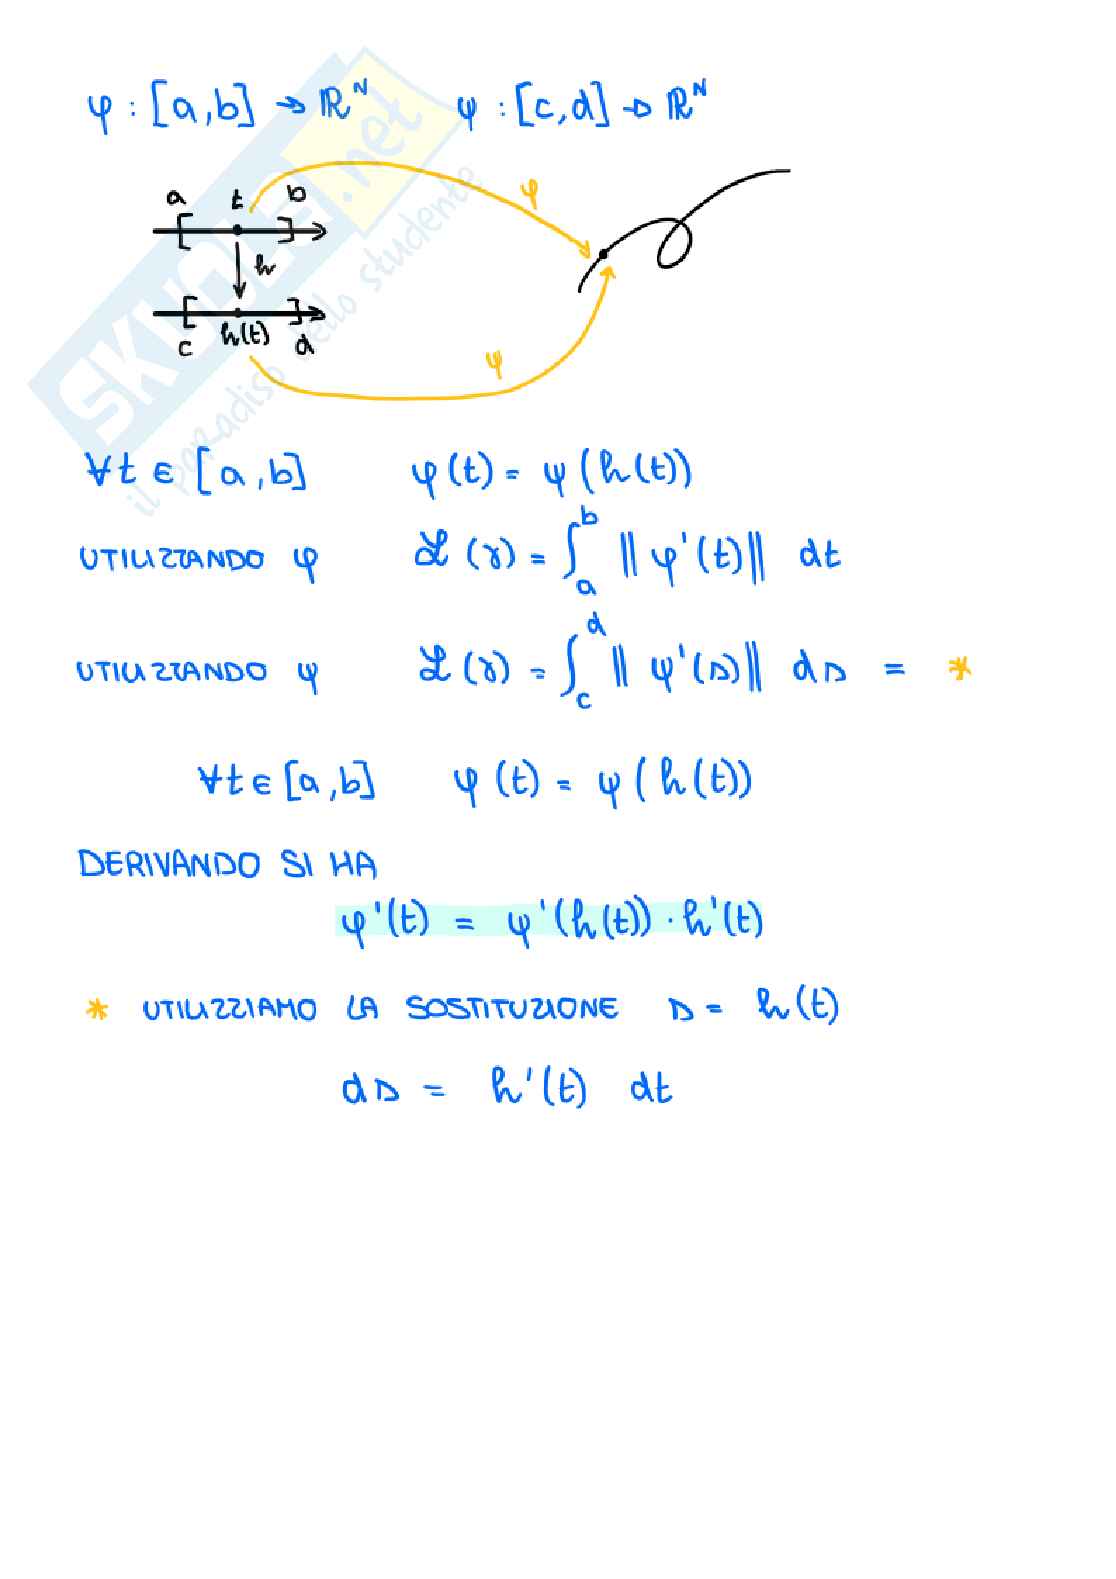 φ : [a,b] → ℝᴺ ψ : [c,d] → ℝᴺ
a t b
φ
h
c h(t) d
ψ
SKUOLA.net
il paradiso dello studente
∀t ∈ [a,b] φ(t) = ψ(h(t))
UTILIZZANDO φ ℒ(γ) = ∫ₐᵇ ‖φ'(t)‖ dt
UTILIZZANDO ψ ℒ(γ) = ∫_c^d ‖ψ'(s)‖ ds = *
∀t ∈ [a,b] φ(t) = ψ(h(t))
DERIVANDO SI HA
φ'(t) = ψ'(h(t)) · h'(t)
* UTILIZZIAMO LA SOSTITUZIONE s = h(t)
ds = h'(t) dt